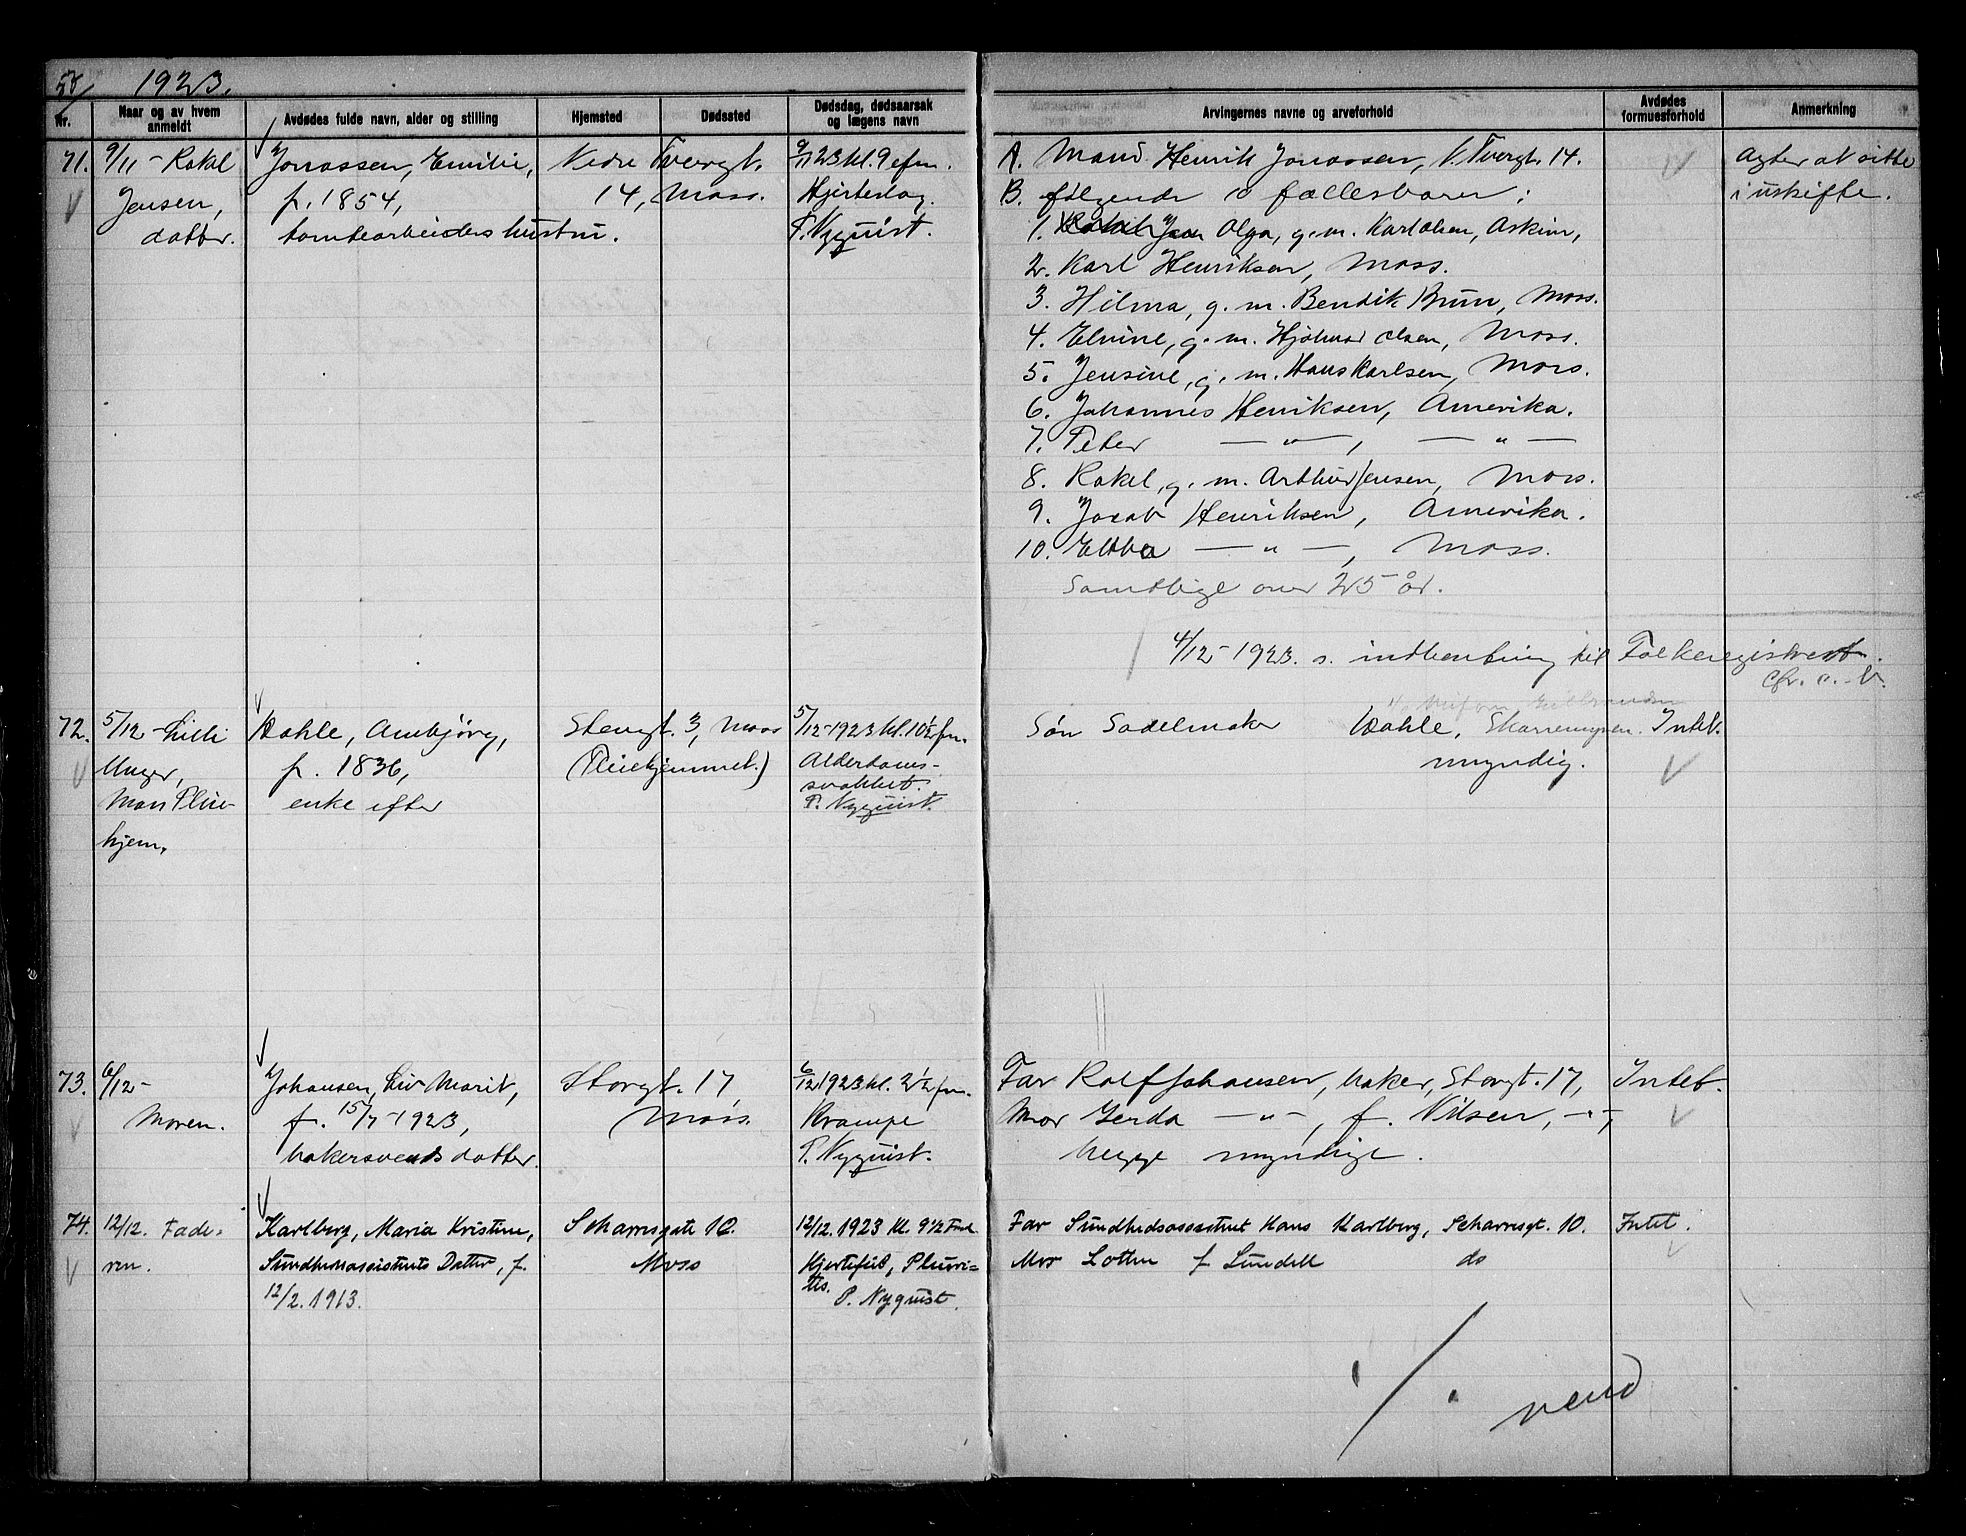 58/ 1923.
Nr.
Naar og av hvem anmeldt
Avdødes fulde navn, alder og stilling
Hjemsted
Dødssted
Dødsdag, dødsaarsak og lægens navn
Arvingernes navne og arveforhold
Avdødes formuesforhold
Anmerkning
71. 9/11 - Rakel
Jensen,
datter.
Jonassen, Emilie,
f. 1854,
tomtearbeiders hustru.
Nedre Tvergt.
14, Moss.
9/11 23 kl. 9 efm.
Hjerteslag.
P. Nyquist.
A. Mand Henrik Jonassen, N. Tvergt. 14.
B. følgende 10 fællesbarn:
1. Olga, g.m. Karl Olsen, Askim,
2. Karl Henriksen, Moss.
3. Hilma, g. m. Bendik Brun, Moss.
4. Elvine, g. m. Hjalmar Olsen, Moss.
5. Jensine, g. m. Hans Karlsen, Moss.
6. Johannes Henriksen, Amerika.
7. Peter — " —, — " —
8. Rakel, g. m. Arthur Jensen, Moss.
9. Jacob Henriksen, Amerika.
10. Ebba — " —, Moss.
Samtlige over 25 år.
Agter at sitte
i uskifte.
4/12 - 1923. s. indhentning til Folkeregistret.
Cfr. a. - b.
72. 5/12 - Lilli
Unger,
Moss Pleie-
hjem.
Dahle, Ambjørg,
f. 1836,
enke efter
Stengt. 3, Moss
(Pleiehjemmet.)
5/12 - 1923 kl. 10 1/2 fm.
Alderdoms-
svakhet.
P. Nyquist.
Søn Sadelmaker Dahle, Skarremyren.
myndig.
Intet.
73. 6/12 -
Moren.
Johansen, Liv Marit,
f. 15/7 - 1923,
bakersvends datter.
Storgt. 17
Moss.
6/12 1923 kl. 2 1/2 fm.
Krampe
P. Nyquist.
Far Rolf Johansen, baker, Storgt. 17,
Mor Gerda — " —, f. Nilsen, - " -,
begge myndige.
Intet.
74. 12/12. Fade-
ren.
Karlberg, Maria Kristine,
Sundhetsassistents Datter, f.
12/2. 1913.
Scharrsgate 10.
Moss
12/12. 1923 kl. 9 1/2 Fmd.
Hjertefeil, Pleuri-
tis.
P. Nyquist.
Far Sundhedsassistent Hans Karlberg, Scharrsgt. 10.
Mor Lotten f Lundell do
Intet.
./. vend